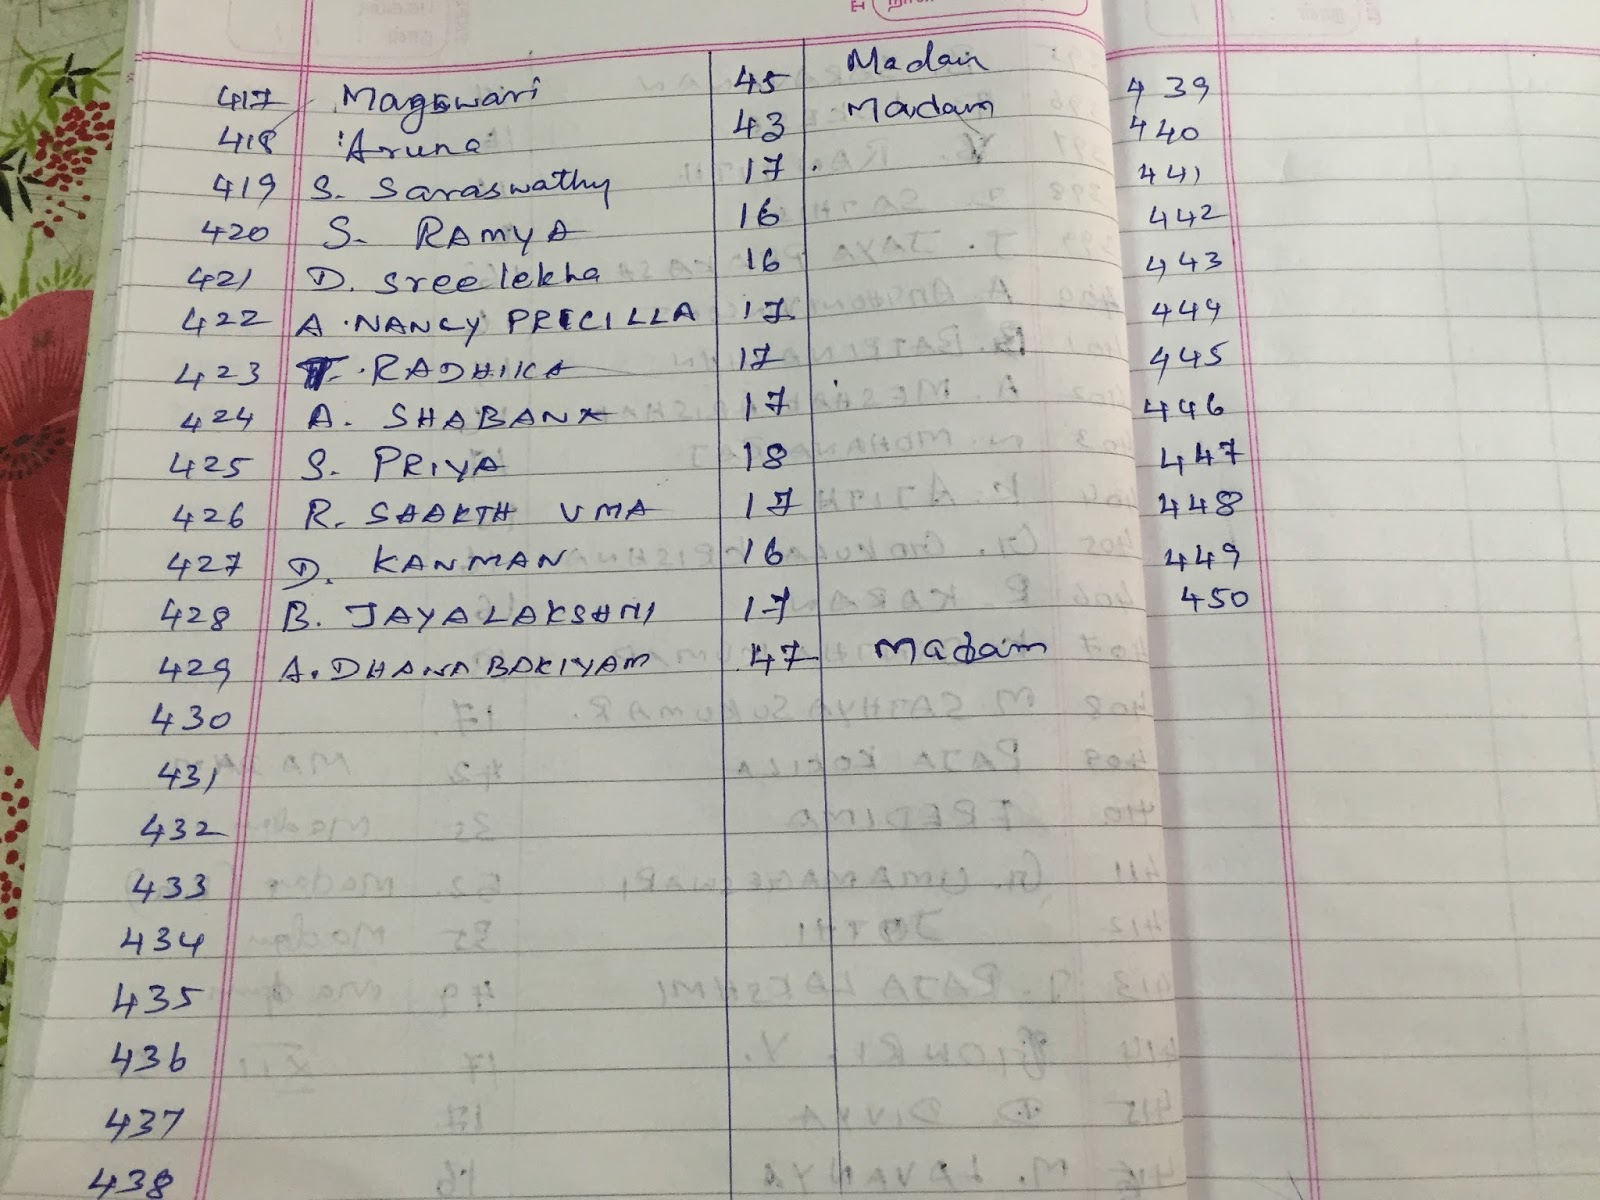 417 Mageswari 45 Madam
418 Aruna 43 Madam
419 S. Saraswathy 17
420 S. RAMYA 16
421 D. Sreelekha 16
422 A. NANCY PRECILLA 17
423 T. RADHIKA 17
424 A. SHABANA 17
425 S. PRIYA 18
426 R. SAAKTH UMA 17
427 D. KANMAN 16
428 B. JAYALAKSHMI 17
429 A. DHANABAKIYAM 47 Madam
430
431
432
433
434
435
436
437
438
439
440
441
442
443
444
445
446
447
448
449
450